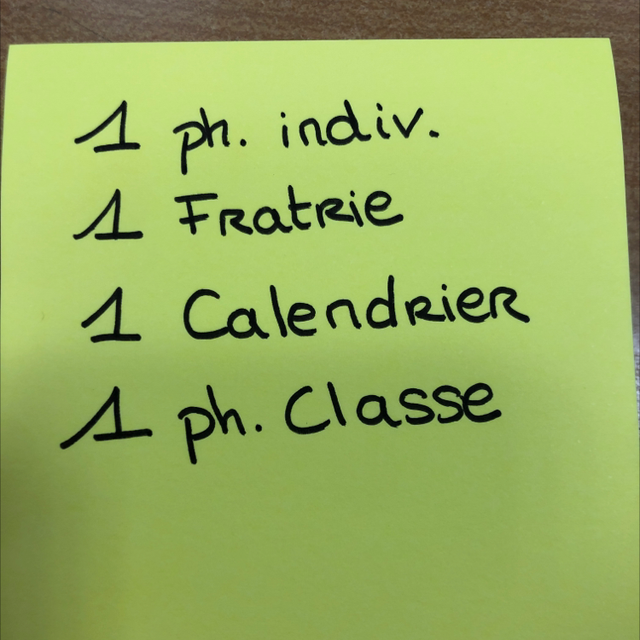 1 ph. indiv.
1 Fratrie
1 Calendrier
1 ph. Classe